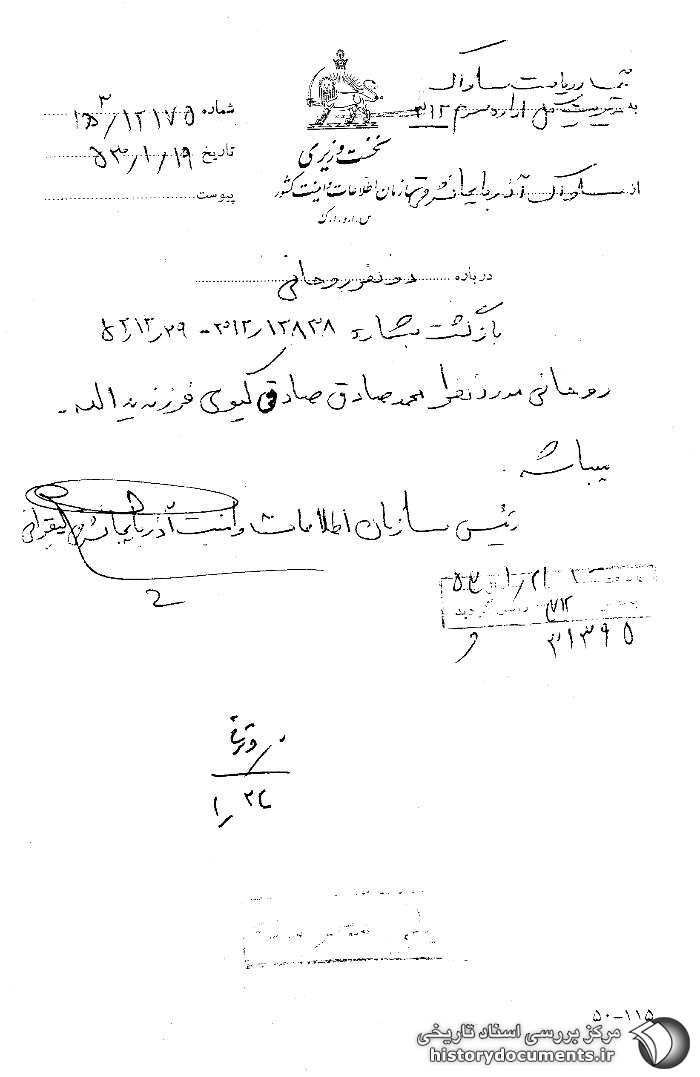 تیمسار ریاست ساواک
به مدیریت کل اداره سوم ۳۱۲
از ساواک آذربایجانشرقی
نخست وزیری
سازمان اطلاعات و امنیت کشور
س.ا.و.ا.ک
شماره ۱۲۱۷۵/۳ھ۱
تاریخ ۵۳/۱/۱۹
پیوست
درباره دو نفر روحانی
بازگشت بشماره ۳۱۲/۱۲۸۳۸ - ۵۲/۱۲/۲۹
روحانی موردنظر محمد صادق صادقی گیوی فرزند یداله.
میباشد.
رئیس سازمان اطلاعات و امنیت آذربایجانشرقی لیقوانی
۵۳/۱/۲۱
۳۱۲
گردید
۳۱۳۹۵
۱/۲۴
۵۰-۱۱۵
مرکز بررسی اسناد تاریخی
historydocuments.ir